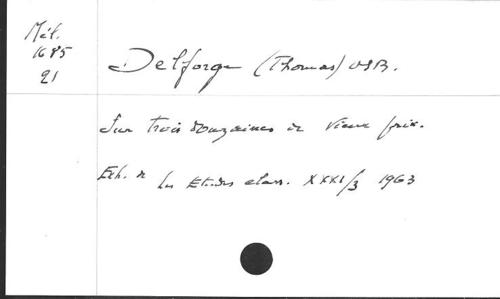 Mél.
1685
21
Delforge (Thomas) OSB.
Sur trois douzaines de vieux prix.
Ext. de Les Etudes class. XXXI/3 1963